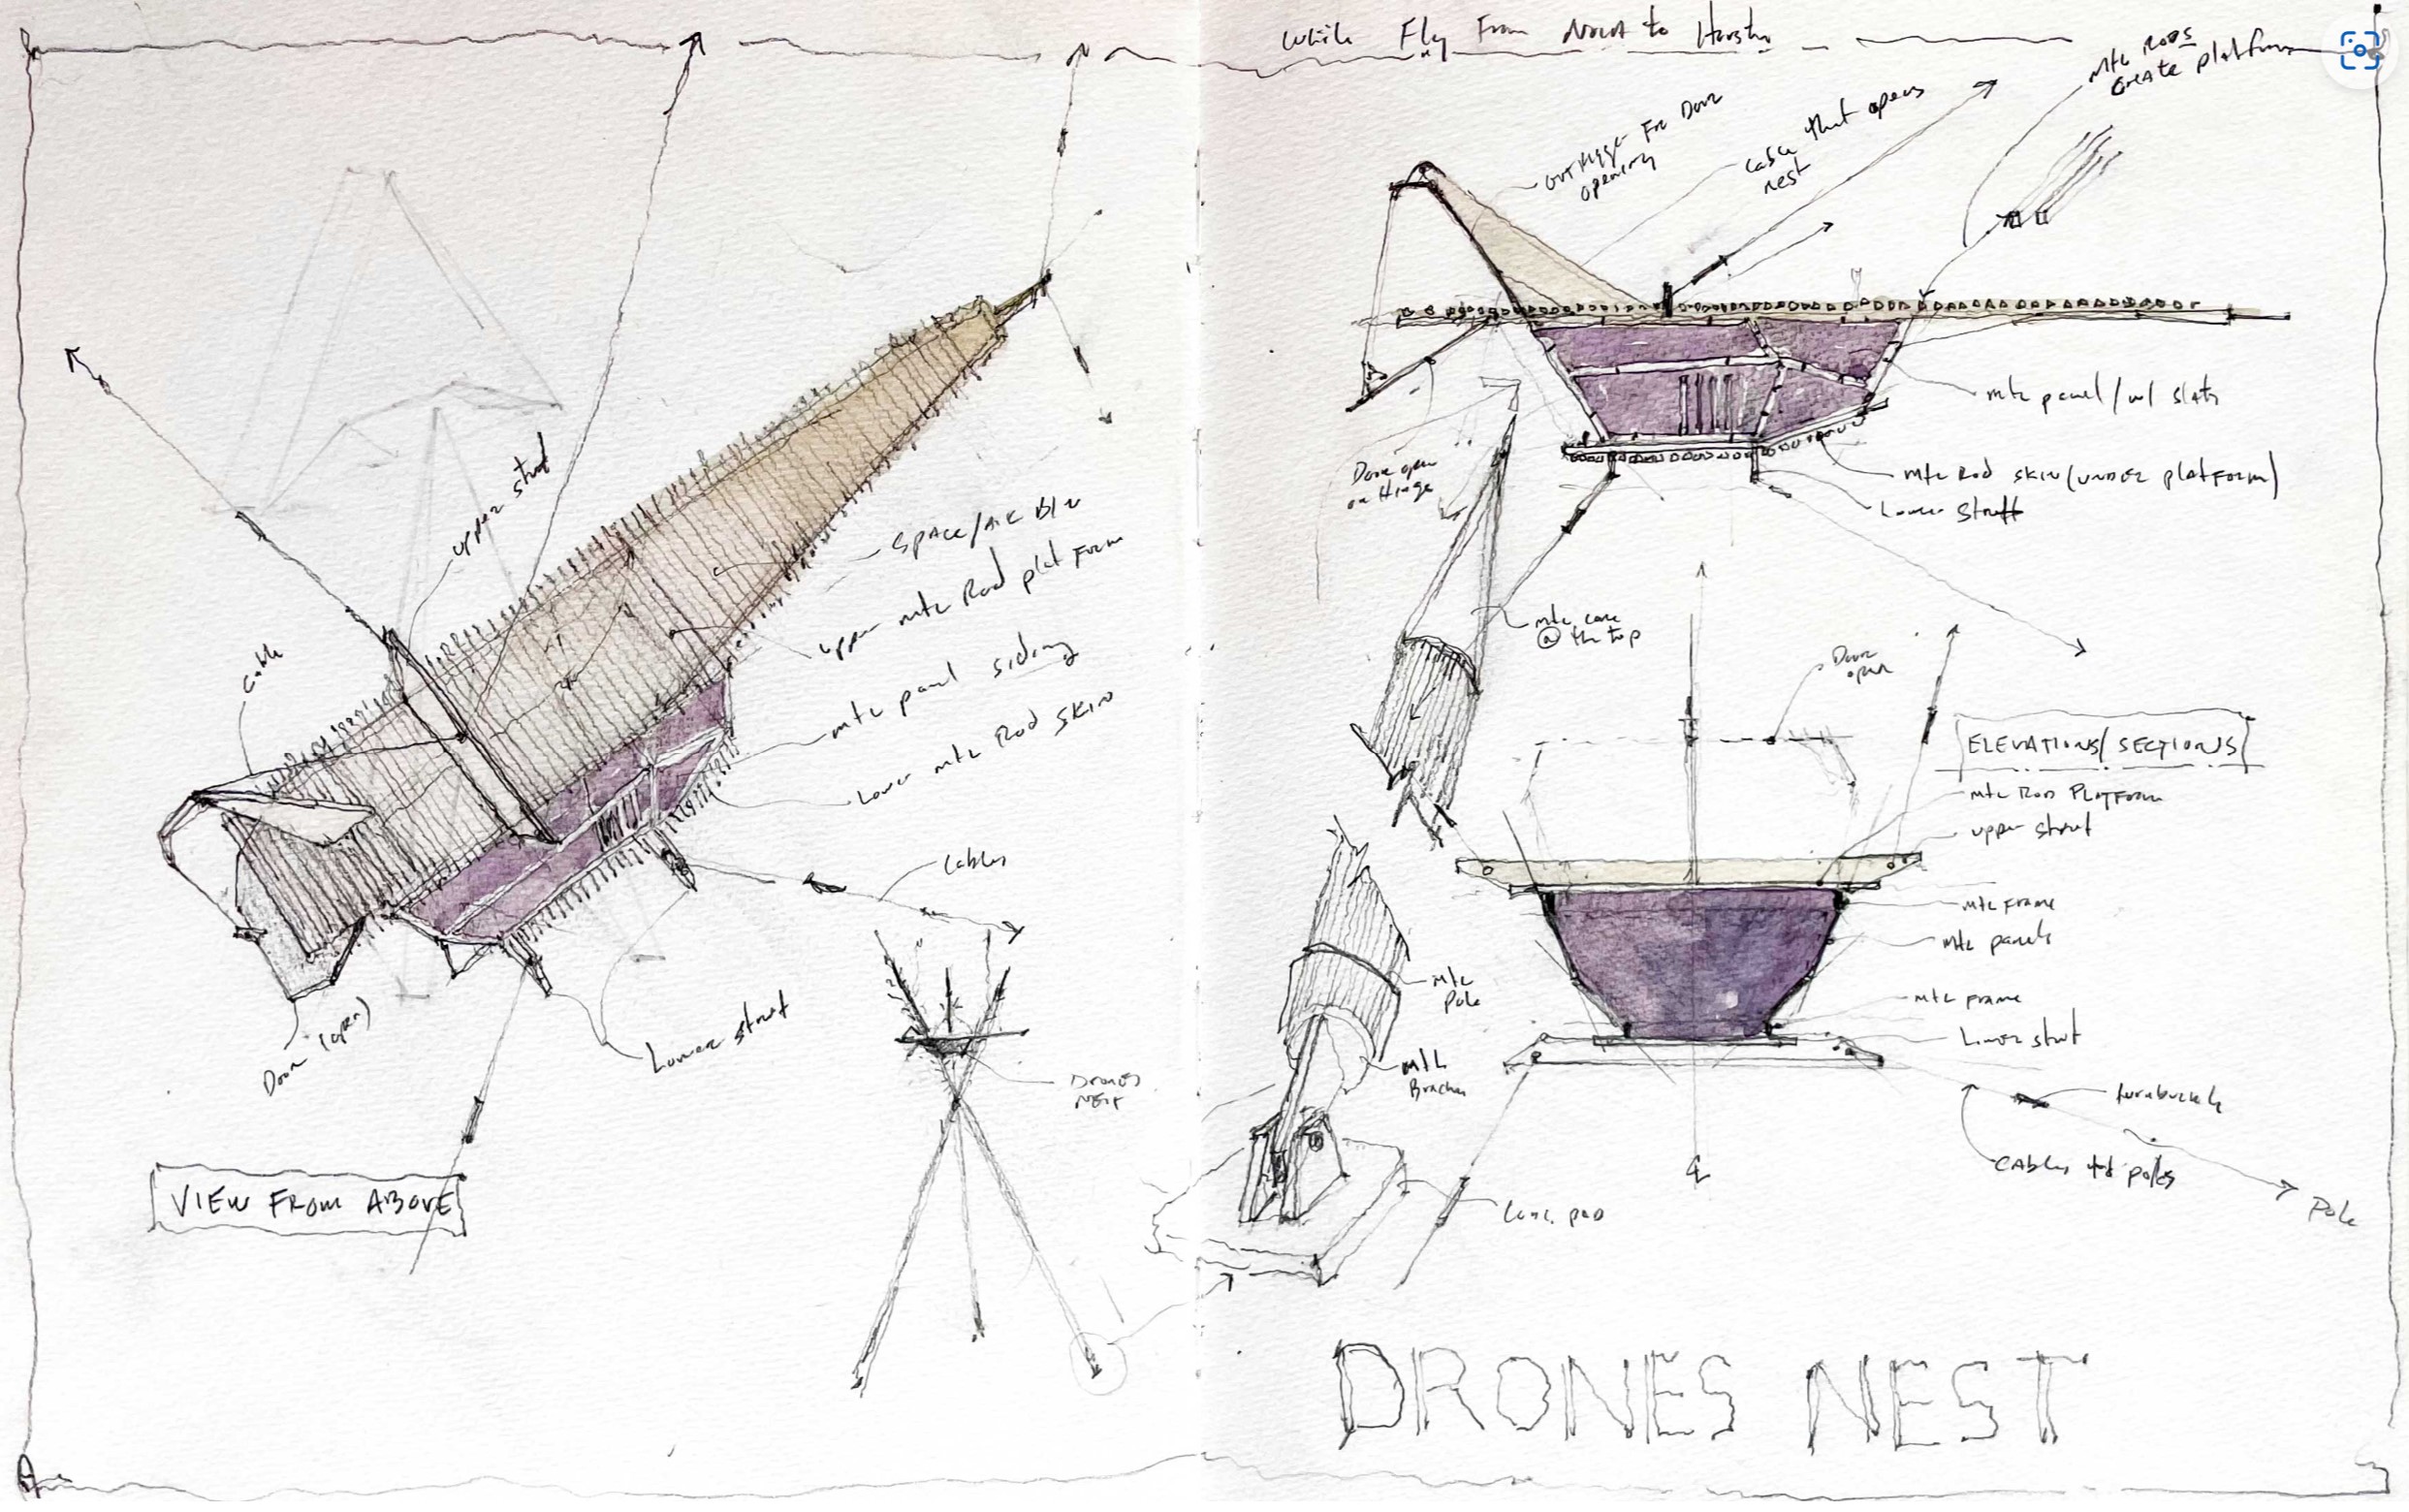 upper strut
cable
SPACE/AIR
upper mtl Rod platform
mtl panel siding
Lower mtl Rod SKIN
cables
Door (open)
Lower strut
DRONES
NEST
VIEW FROM ABOVE
While Fly From to
mtl RODS
Create platform
OUTRIGGER For Door
opening
cable that opens
nest
mtl panel / w/ slats
Door open
on Hinge
mtl Rod SKIN (UNDER PLATFORM)
Lower Strutt
mtl cone
@ the top
Door
open
ELEVATIONS/SECTIONS
mtl Rod PLATFORM
upper strut
mtl Frame
mtl panels
mtl
Pole
mtl Frame
Lower strut
mtl
turnbuckle
CABLES to poles
Pole
Conc. pad
℄
DRONES NEST